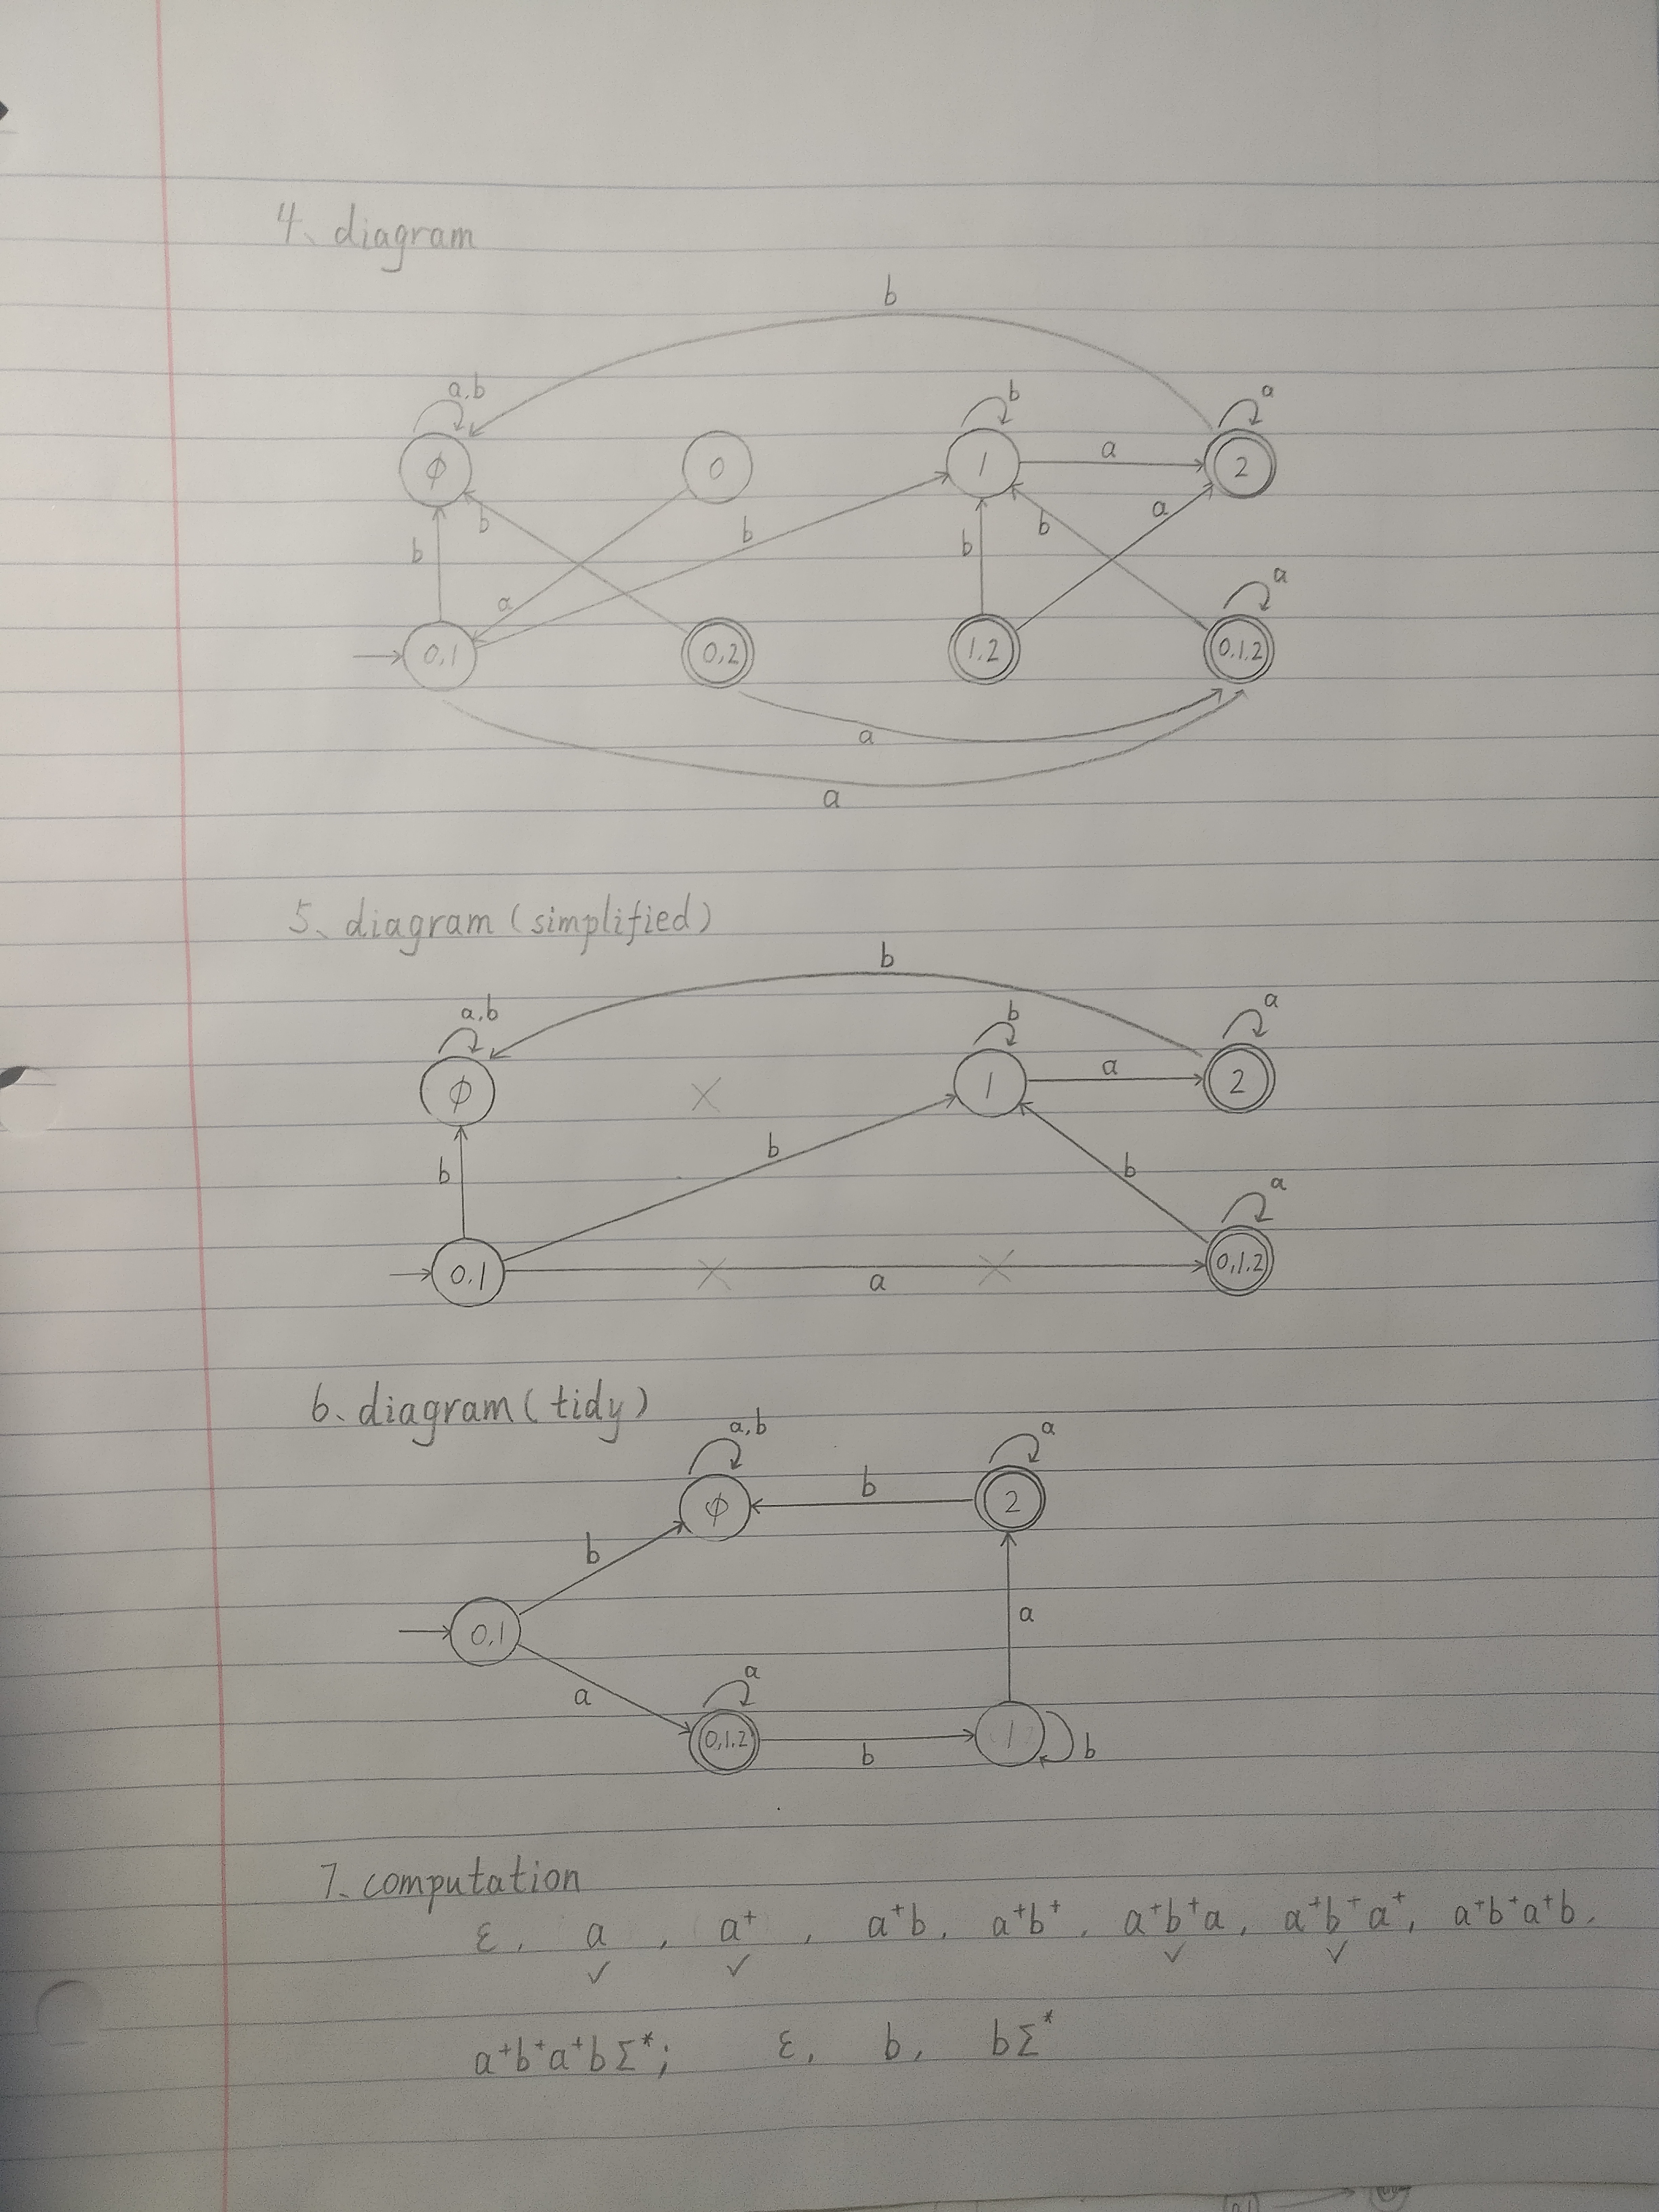 4、diagram
b
a,b b a
φ 0 1 a 2
b b b b b a
a a
0,1 0,2 1,2 0,1,2
a
a
5、diagram (simplified)
b
a,b b a
φ × 1 a 2
b b b a
0,1 × a × 0,1,2
6、diagram (tidy)
a,b a
φ b 2
b
0,1 a
a a
0,1,2 b 1 b
7、computation
ε, a, a⁺, a⁺b, a⁺b⁺, a⁺b⁺a, a⁺b⁺a⁺, a⁺b⁺a⁺b,
✓ ✓ ✓ ✓
a⁺b⁺a⁺bΣ*; ε, b, bΣ*